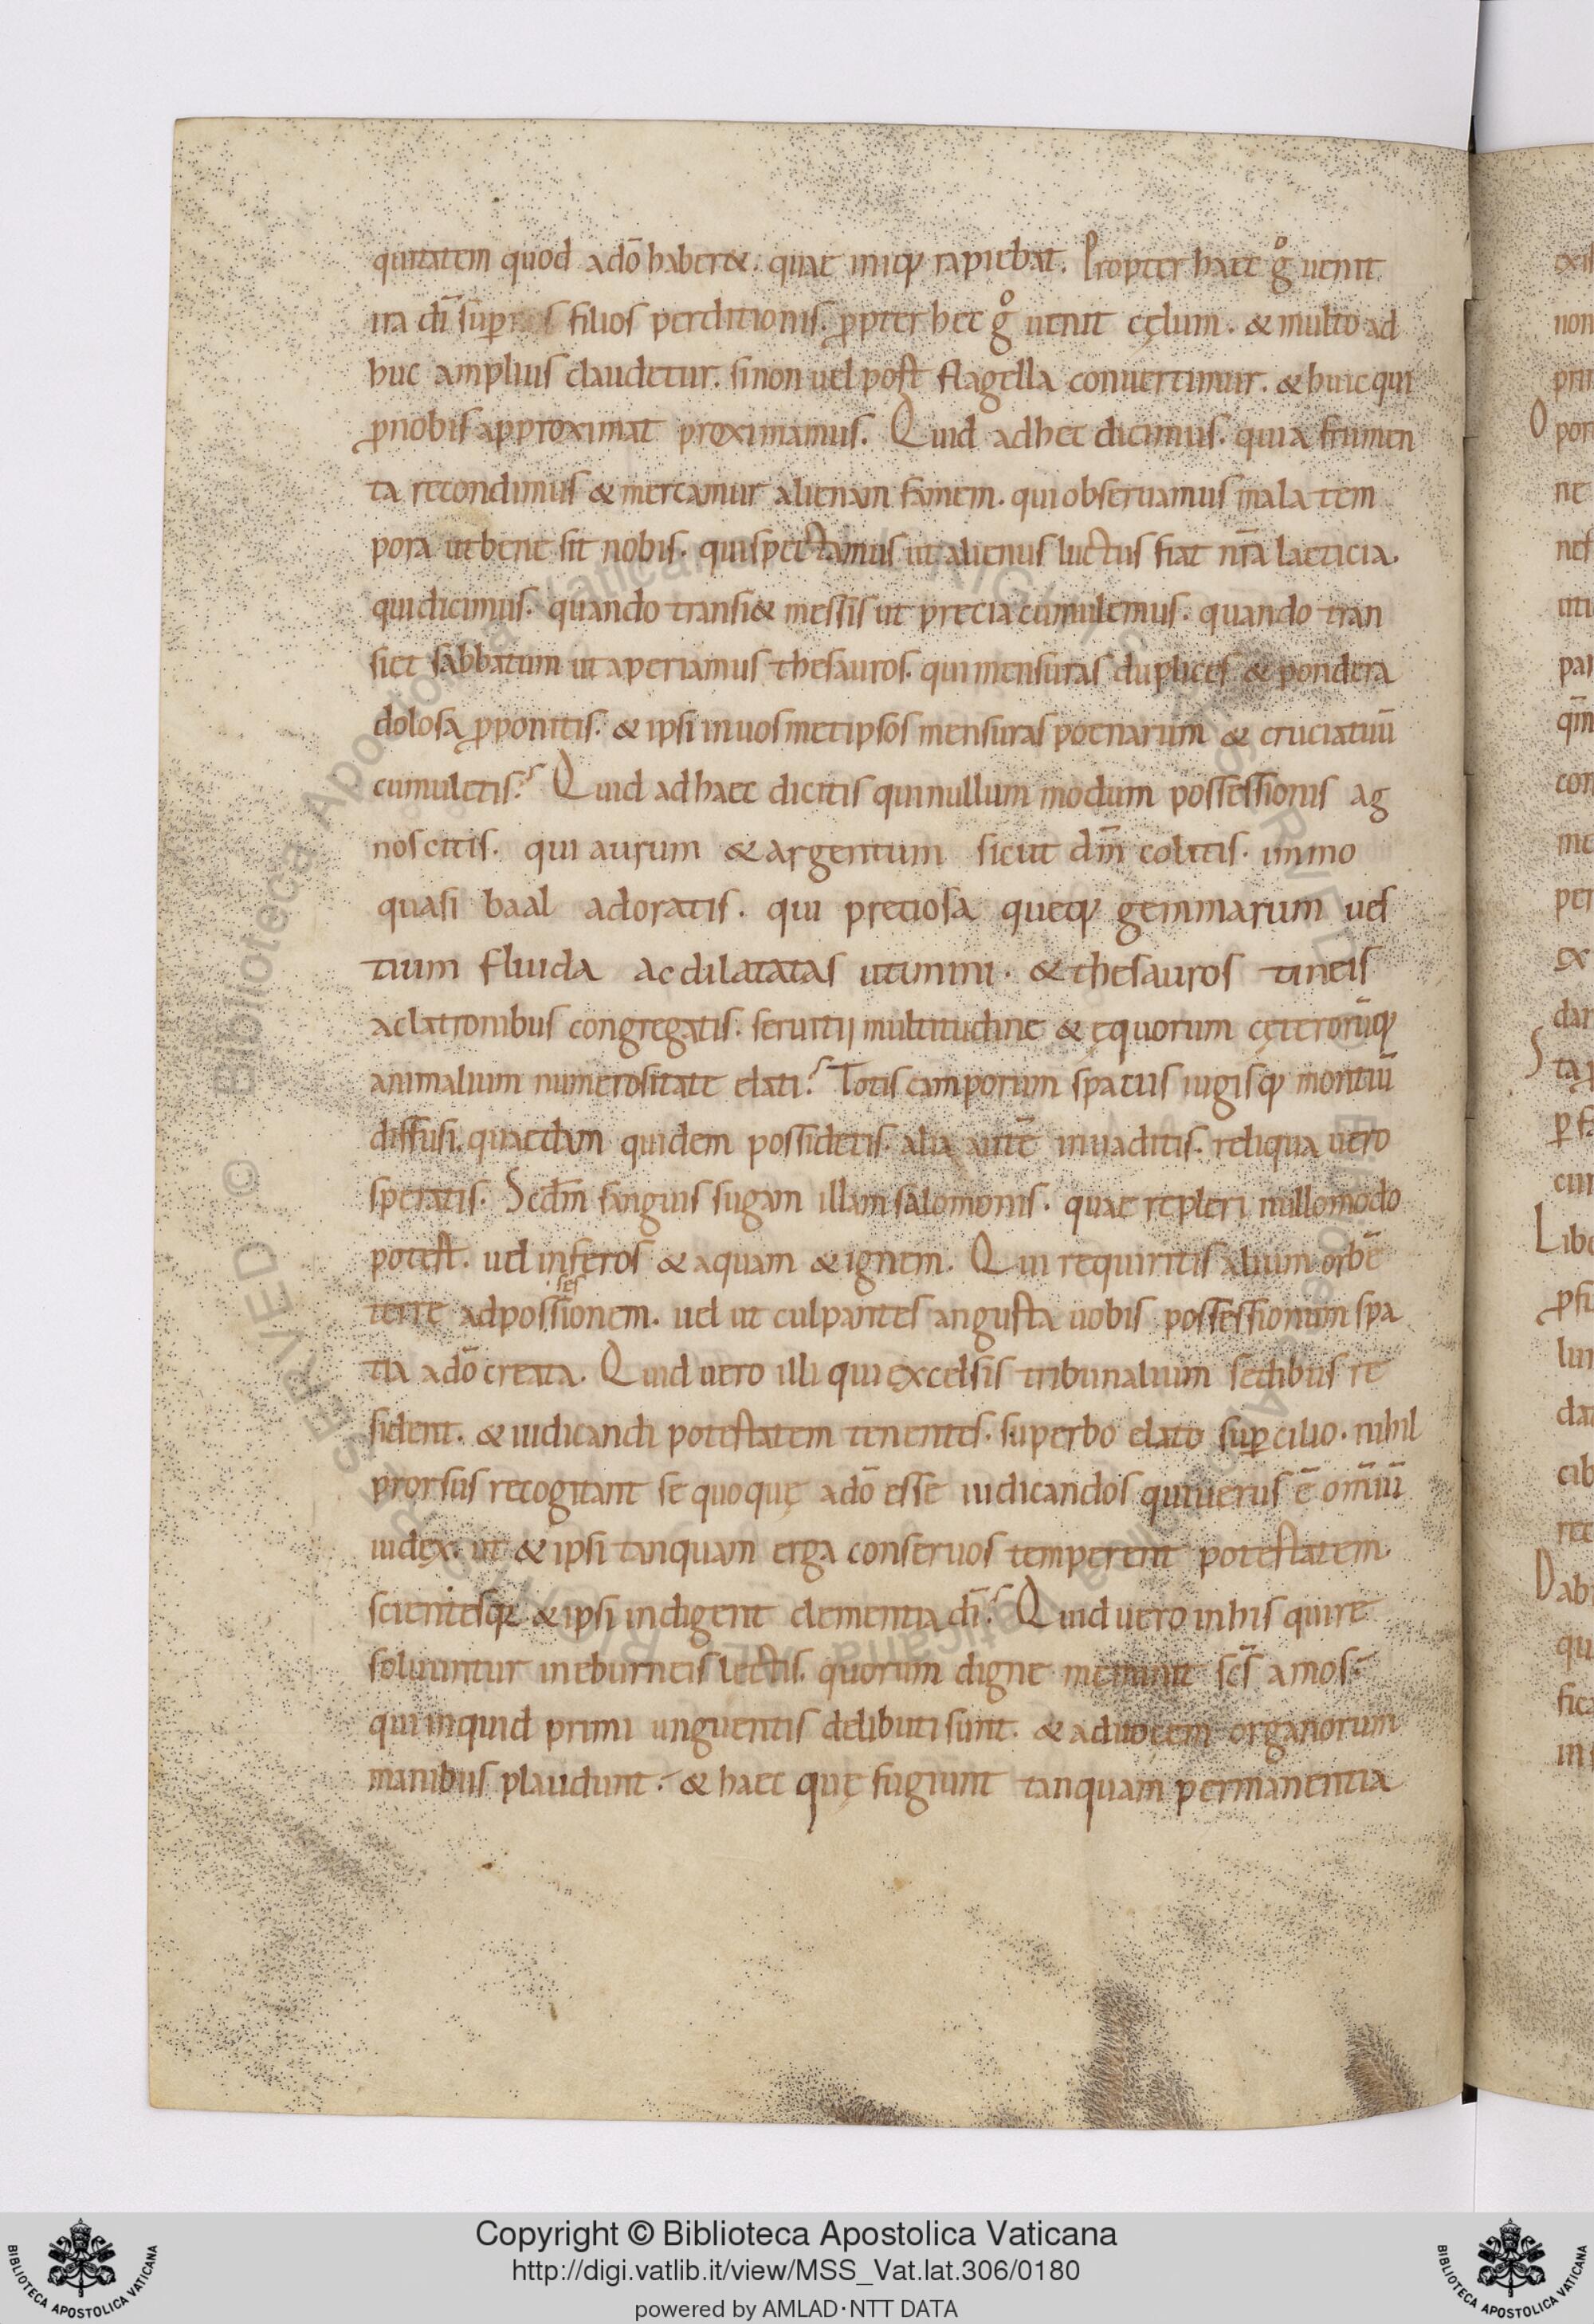 quitatem quod adō haber&. quae iniqꝫ rapiebat. Propter haec gͦ uenit
ira dī suꝑ filios perditionis. ꝓpter hec gͦ uenit cęlum. & multo ad
huc amplius claudetur. si non uel post flagella conuertimur. & huic qui
ꝓ nobis approximat proximamus. Quid ad hec dicimus. quia frumen
ta recondimus & mercamur alienam famem. qui obseruamus mala tem
pora ut bene sit nobis. qui spectamus ut alienus luctus fiat nr̄a laeticia.
qui dicimus. quando transi& messis ut precia cumulemus. quando tran
siet sabbatum ut aperiamus thesauros. qui mensuras duplices & pondera
dolosa ꝓponitis. & ipsi in uosmetipsos mensuras poenarum & cruciatuū
cumuletis? Quid ad haec dicitis qui nullum modum possessionis ag
noscitis. qui aurum & argentum sicut dm̄ colitis. immo
quasi baal adoratis. qui preciosa queqꝫ gemmarum ues
tium fluida ac dilatatas utimini. & thesauros tineis
ac latronibus congregatis. seruitij multitudine & ęquorum cęterorūqꝫ
animalium numerositate elati? Totis camporum spaciis iugisqꝫ montiū
diffusi. quaedam quidem possidetis. alia autē inuaditis. reliqua uero
speratis. Scdm̄ sanguis sugam illam salomonis. quae repleri nullomodo
potest. uel inferos & aquam & ignem. Qui requiritis alium orbē
terre ad possſesionem. uel ut culpantes angusta uobis possessionum spa
tia adō creata. Quid uero illi qui excelsis tribunalium sedibus re
sident. & iudicandi potestatem tenentes. superbo elato suꝑcilio. nihil
prorsus recogitant se quoquę adō esse iudicandos qui uerus ē om̄iū
iudęx. ut & ipsi tanquam erga conseruos temperent potestatem
scientesqꝫ & ipsi indigent clementia dī? Quid uero in his qui re
soluuntur in eburneis lectis. quorum digne meminit sc̄s amos.
qui inquid primi unguentis delibuti sunt. & ad uocem organorum
manibus plaudunt. & haec quę fugiunt tanquam permanentia
Copyright © Biblioteca Apostolica Vaticana
http://digi.vatlib.it/view/MSS_Vat.lat.306/0180
powered by AMLAD·NTT DATA
BIBLIOTECA APOSTOLICA VATICANA
BIBLIOTECA APOSTOLICA VATICANA